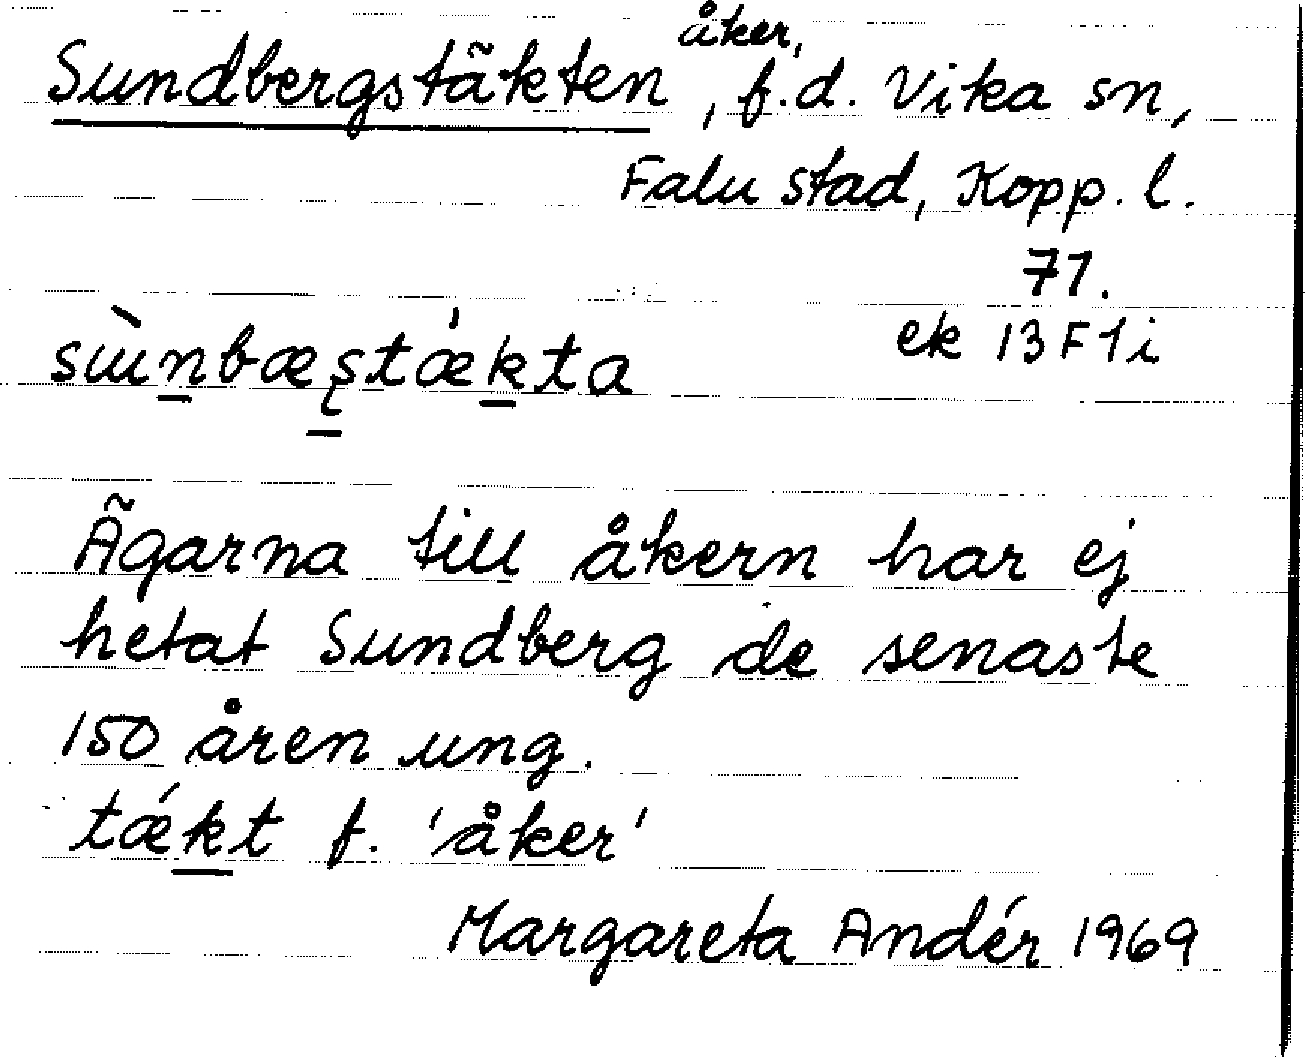 Sundbergstäkten, åker, f.d. Vika sn,
Falu stad, Kopp. l.
71.
ek 13F1i
sɯ̀n̲bæʂ̲tæ̍k̲ta
Ägarna till åkern har ej
hetat Sundberg de senaste
150 åren ung.
tǽk̲t f. 'åker'
Margareta Andér 1969